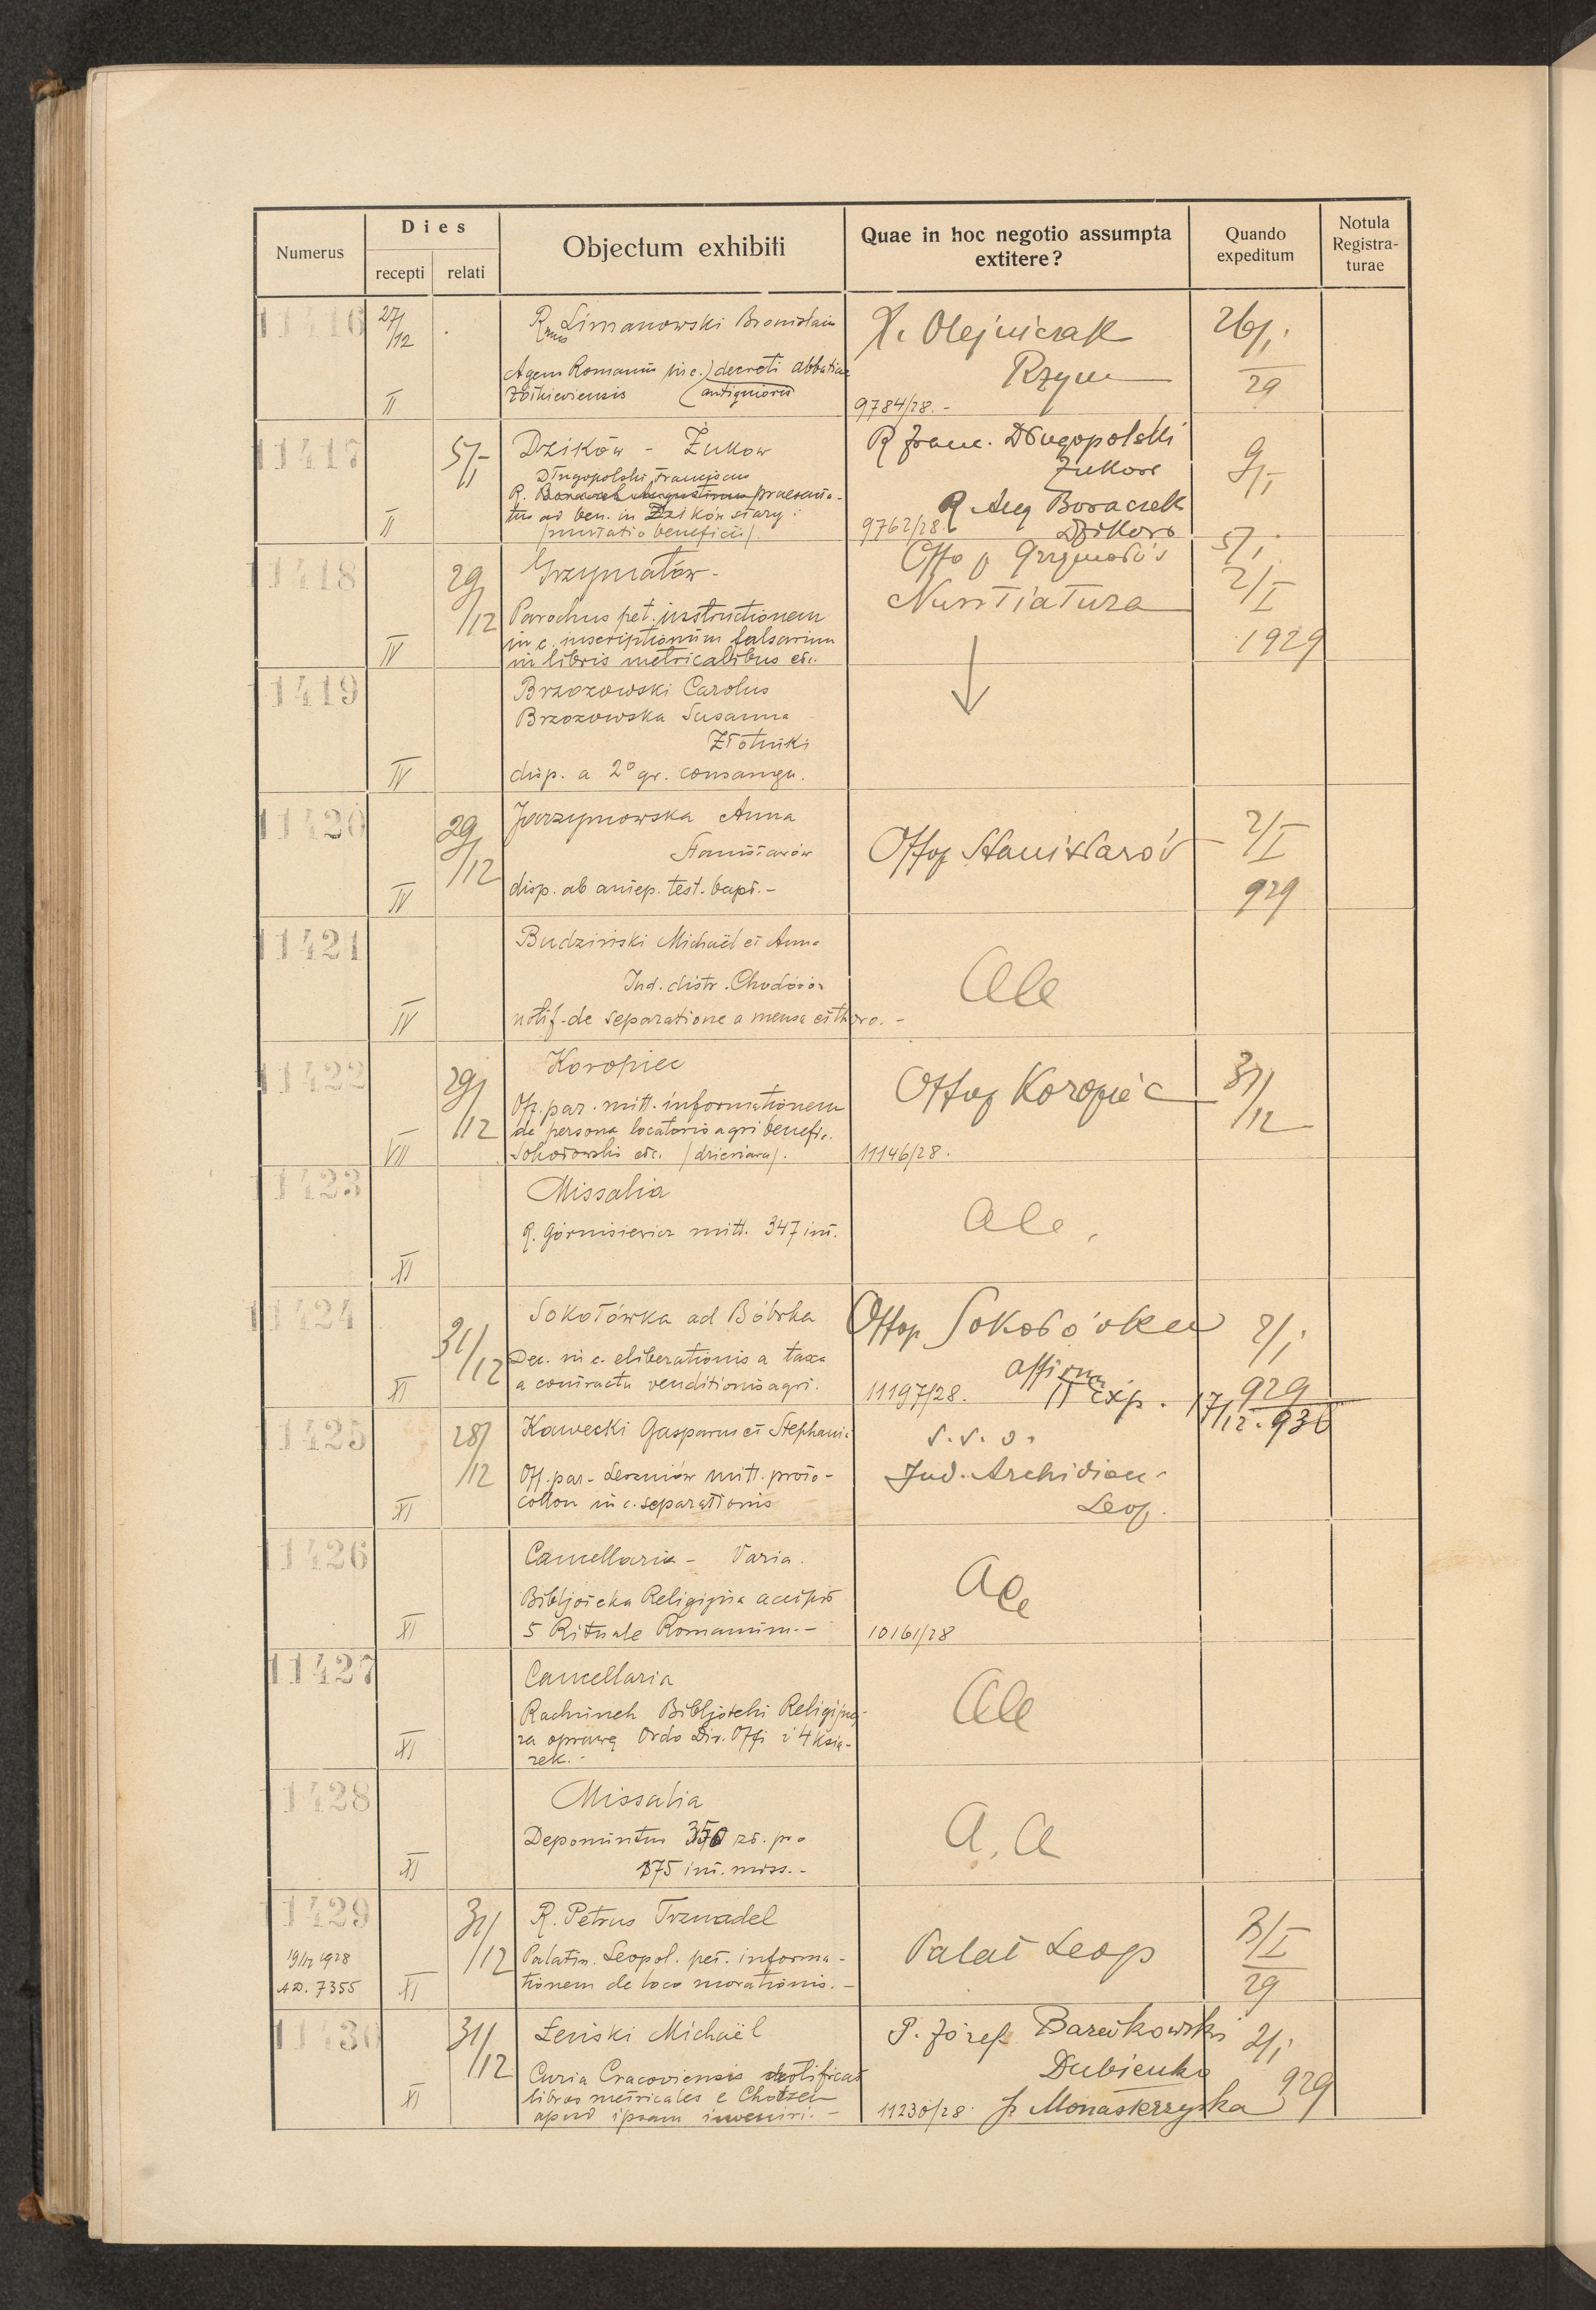 Numerus
Dies
recepti
relati
Objectum exhibiti
Quae in hoc negotio assumpta
extitere?
Quando
expeditum
Notula
Registra-
turae
11416
27/12
II
Rmus Limanowski Bronislaus
Agens Romanus in c. decreti abbatiae
antiquioris
X. Olejniczak
Rzym
9784/28.-
26/I
29
11417
5/I
II
Dzików - Żuków
Długopolski Franciscus
R. praesenta-
tus ad ben. in Dzików stary
/mutatio beneficii/.
R. Franc. Długopolski
Żuków
R. Aug Boraczek
Dzików
9762/28.
9/I
11418
29/12
IV
Grzymałów -
Parochus pet. instructionem
in c. inscriptionum falsarum
in libris metricalibus etc.
Offo p Grzymałów
Nuntiatura
5/I
2/I
1929
11419
IV
Brzozowski Carolus
Brzozowska Susanna
Złotniki
disp. a 2° gr. consangu.
11420
29/12
IV
Jarzymowska Anna
Stanisławów
disp. ab antep. test. bapt. -
Offop Stanisławów
2/I
929
11421
IV
Budziński Michaël et Anna
Jud. distr. Chodorów
notif. de separatione a mensa et thoro. -
Ale
11422
29/12
VII
Koropiec
Off. par. mitt. informationem
de persona locatoris agri benefic.
Sokołowski etc. /dzierżawa/.
Offop Koropiec
11146/28.
31/12
11423
XI
Missalia
R. Górnisiewicz mitt. 347 int.
ale.
11424
31/12
XI
Sokołówka ad Bóbrka
Dec. in c. eliberationis a taxa
a contractu venditionis agri.
Offop Sokołówka
affirm.
11197/28.
II Exp.
2/I
929
17/12.930
11425
28/12
XI
Kawecki Gasparus et Stephania
Off. par. mitt. proto-
collon in c. separationis
S.V.O.
Jud. Archidioec.
Leop.
11426
XI
Cancellaria - Varia.
Bibljoteka Religijna accipit
5 Rituale Romanum. -
Ale
10161/28
11427
XI
Cancellaria
Rachunek Bibljoteki Religijnej
za oprawę Ordo Div. Offi i 4 ksią-
żek. -
Ale
11428
XI
Missalia
Deponuntur 350 zł. pro
175 int. miss. -
A.A
11429
19/12 1928
AD. 7355
31/12
XI
R. Petrus Trznadel
Palatin. Leopol. pet. informa-
tionem de loco morationis. -
Palat Leop
3/I
29
11430
31/12
XI
Łeński Michaël
Curia Cracoviensis notificat
libros metricales e
apud ipsam inveniri. -
P. Józef
Dubienko
p Monasterzyska
11230/28.
2/I
929